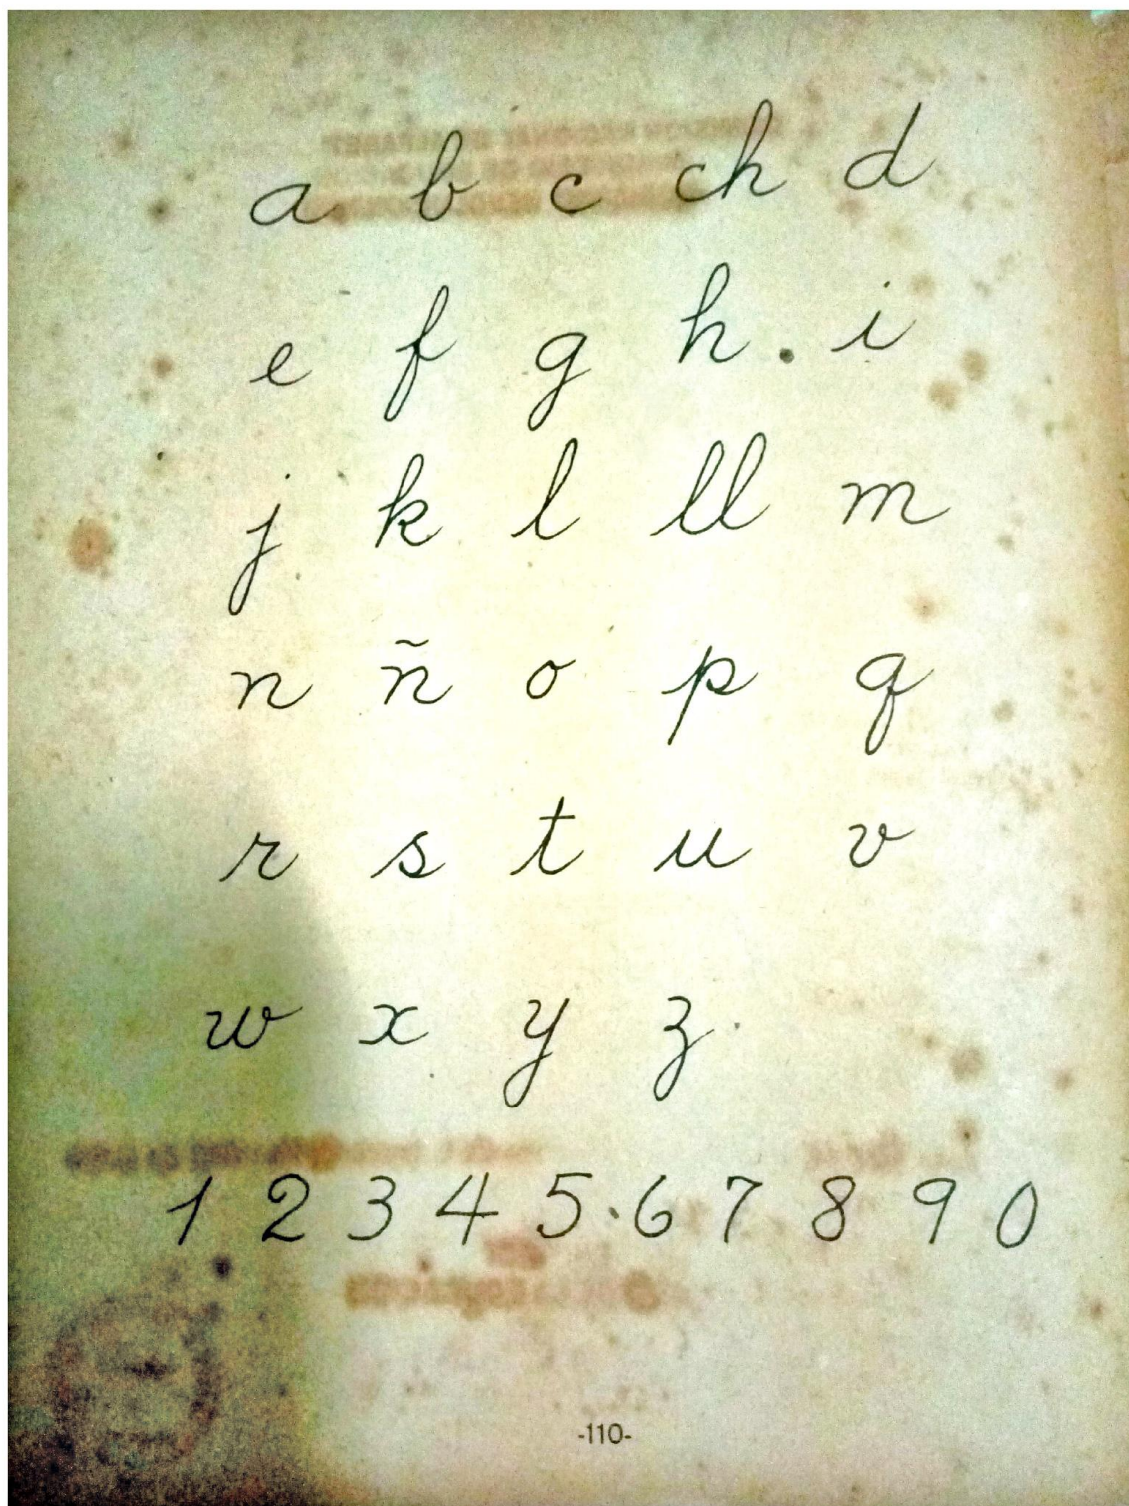 a b c ch d
e f g h i
j k l ll m
n ñ o p q
r s t u v
w x y z
1 2 3 4 5 6 7 8 9 0
-110-